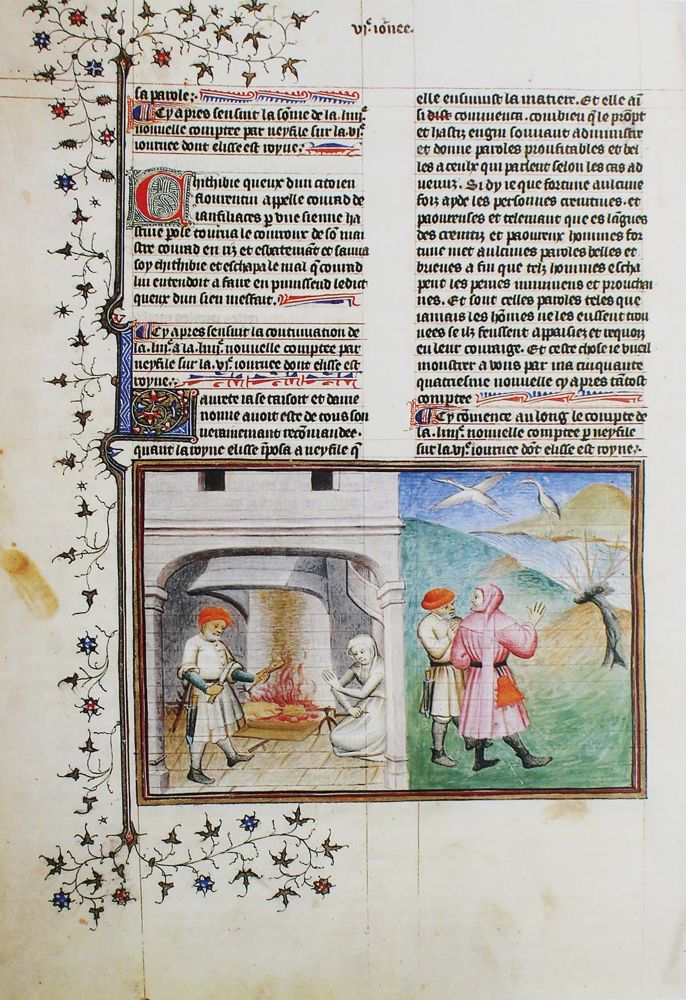 vj.e iornee.
sa parole.
Cy apres sensuit la some de la iiij.e
nouvelle comptee par neyfile sur la vj.e
iournee dont elisse est royne.
Chichibie queux dun citoyen
flourentin appelle conrad de
ianfiliaces p vne sienne ha
stiue pole tourna le courrour de so mai
stre conrad en ris et esbatemant et sauua
soy chichibie et eschapa le mal q conrad
lui entendoit a faire en punissend ledit
queux dun sien meffait.
Cy apres sensuit la continuation de
la. iiij.e a la. iiij.e nouuelle comptee par
neyfile sur la. vj.e iournee dont elisse est
royne.
Laurete ia se taisoit et dame
nonie auoit este de tous son
uerainement recomandee.
quant la royne elisse iposa a neyfile q
elle ensuiuist la matiere. Et elle ai
si dist commenca. combien q le propt
et hastif engin souuant administre
et donne paroles prouffitables et bel
les a ceulx qui parlent selon les cas ad
uenuz. Si dy ie que fortune aulcune
foiz ayde les personnes cremtiues. et
paoureuses et telemant que es lagues
des cremtiz et paoureux hommes for
tune met aulcunes paroles belles et
brieues a fin que telz hommes escha
pent les peines imminens et prouchai
nes. Et sont celles paroles teles que
iamais les homes ne les eussent trou
uees se ilz feussent appaisiez et requoy
en leur couraige. Et ceste chose ie vueil
monstrer a vous par ma cinquante
quatriesme nouuelle cy apres tatost
comptee
Cy comence au long le compte de
la. iiij.e nouuelle comptee p neyfile
sur la. vj.e iournee dot elisse est royne.